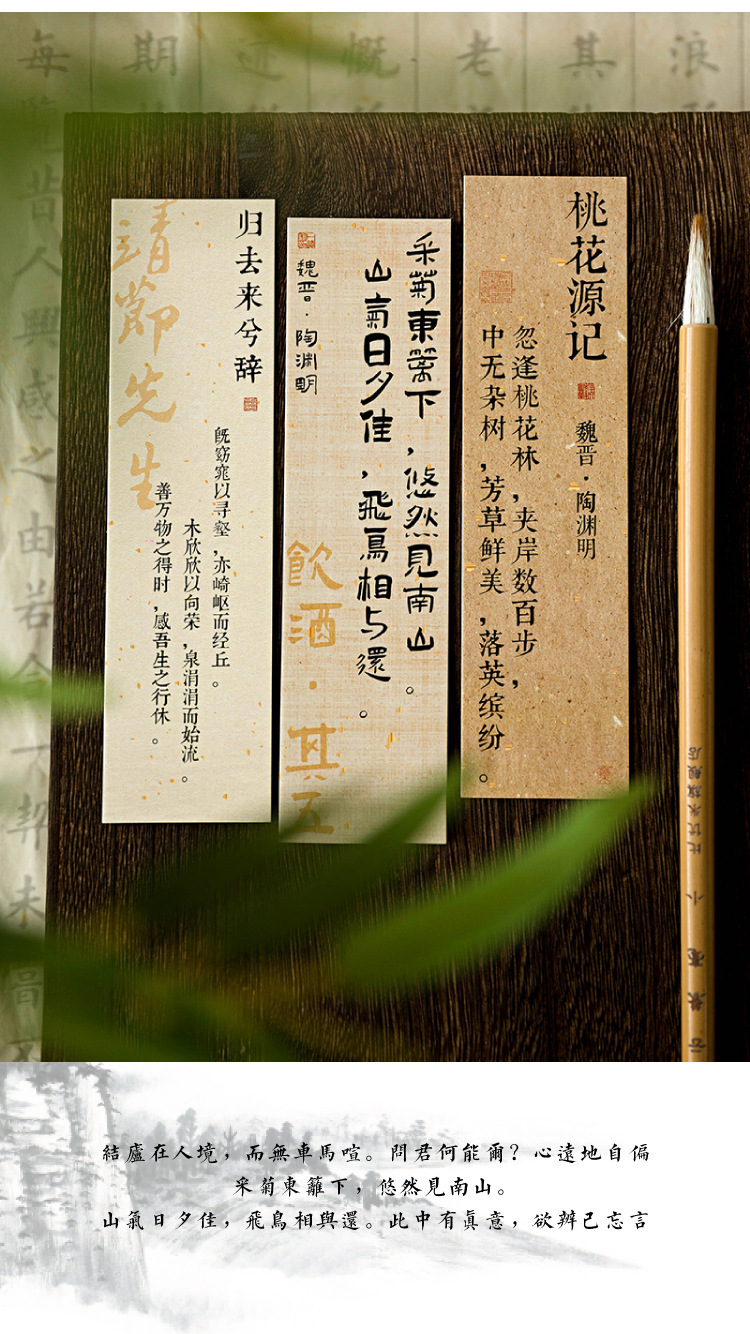 浪
其
老
慨
期
每覽昔人興感之由若
契未
桃花源记
魏晋·陶渊明
忽逢桃花林,夹岸数百步,
中无杂树,芳草鲜美,落英缤纷。
采菊東篱下,悠然見南山。
山氣日夕佳,飛鳥相与還。
魏晋·陶渊明
飲酒·其五
归去来兮辞
既窈窕以寻壑,亦崎岖而经丘。
木欣欣以向荣,泉涓涓而始流。
善万物之得时,感吾生之行休。
靖節先生
小
旗舰店
結廬在人境，而無車馬喧。問君何能爾？心遠地自偏
采菊東籬下，悠然見南山。
山氣日夕佳，飛鳥相與還。此中有眞意，欲辨已忘言